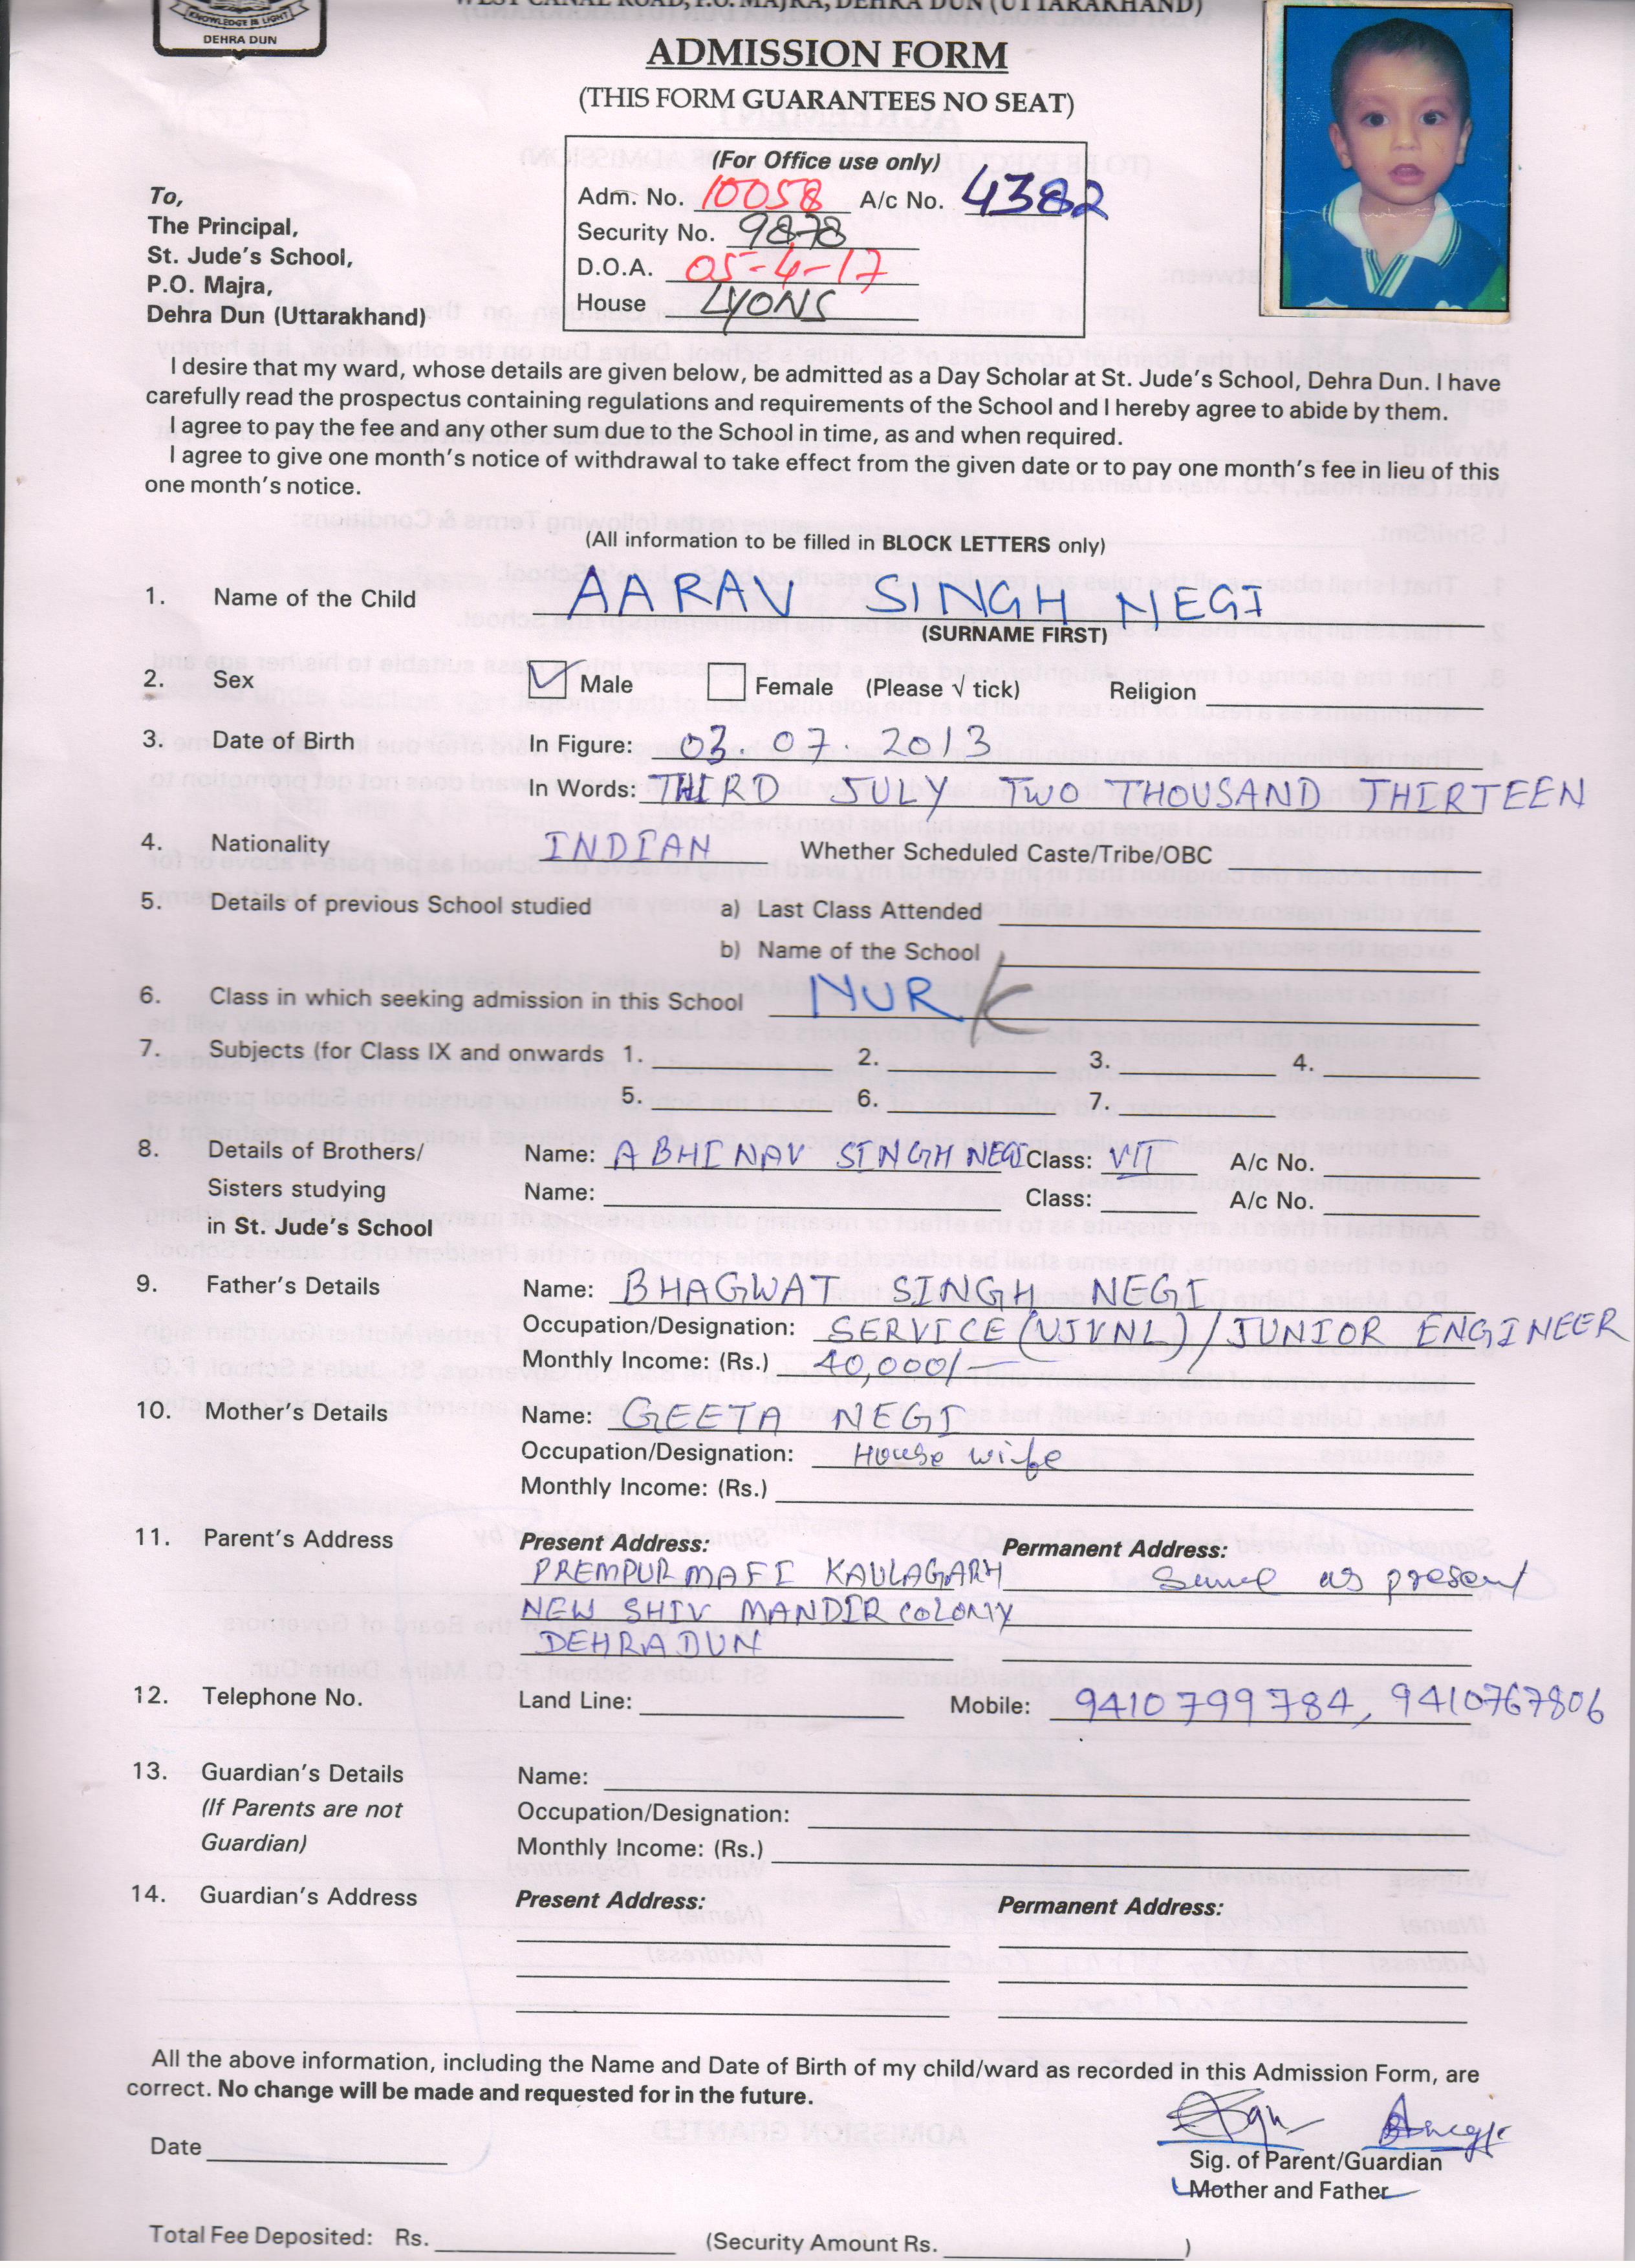 WEST CANAL ROAD, P.O. MAJRA, DEHRA DUN (UTTARAKHAND)
KNOWLEDGE IS LIGHT
DEHRA DUN
ADMISSION FORM
(THIS FORM GUARANTEES NO SEAT)
(For Office use only)
Adm. No. 10058 A/c No. 4382
Security No. 9878
D.O.A. 05-4-17
House LYONS
To,
The Principal,
St. Jude's School,
P.O. Majra,
Dehra Dun (Uttarakhand)
I desire that my ward, whose details are given below, be admitted as a Day Scholar at St. Jude's School, Dehra Dun. I have
carefully read the prospectus containing regulations and requirements of the School and I hereby agree to abide by them.
I agree to pay the fee and any other sum due to the School in time, as and when required.
I agree to give one month's notice of withdrawal to take effect from the given date or to pay one month's fee in lieu of this
one month's notice.
(All information to be filled in BLOCK LETTERS only)
1. Name of the Child AARAV SINGH NEGI
(SURNAME FIRST)
2. Sex Male Female (Please √ tick) Religion
3. Date of Birth In Figure: 03.07.2013
In Words: THIRD JULY TWO THOUSAND THIRTEEN
4. Nationality INDIAN Whether Scheduled Caste/Tribe/OBC
5. Details of previous School studied a) Last Class Attended
b) Name of the School
6. Class in which seeking admission in this School NUR K
7. Subjects (for Class IX and onwards 1. 2. 3. 4.
5. 6. 7.
8. Details of Brothers/ Name: ABHINAV SINGH NEGI Class: VII A/c No.
Sisters studying Name: Class: A/c No.
in St. Jude's School
9. Father's Details Name: BHAGWAT SINGH NEGI
Occupation/Designation: SERVICE (UJVNL) / JUNIOR ENGINEER
Monthly Income: (Rs.) 40,000/-
10. Mother's Details Name: GEETA NEGI
Occupation/Designation: House wife
Monthly Income: (Rs.)
11. Parent's Address Present Address: Permanent Address:
PREMPUR MAFI KAULAGARH Same as present
NEW SHIV MANDIR COLONY
DEHRADUN
12. Telephone No. Land Line: Mobile: 9410799784, 9410767806
13. Guardian's Details Name:
(If Parents are not Occupation/Designation:
Guardian) Monthly Income: (Rs.)
14. Guardian's Address Present Address: Permanent Address:
All the above information, including the Name and Date of Birth of my child/ward as recorded in this Admission Form, are
correct. No change will be made and requested for in the future.
Date
Sig. of Parent/Guardian
Mother and Father
Total Fee Deposited: Rs. (Security Amount Rs. )